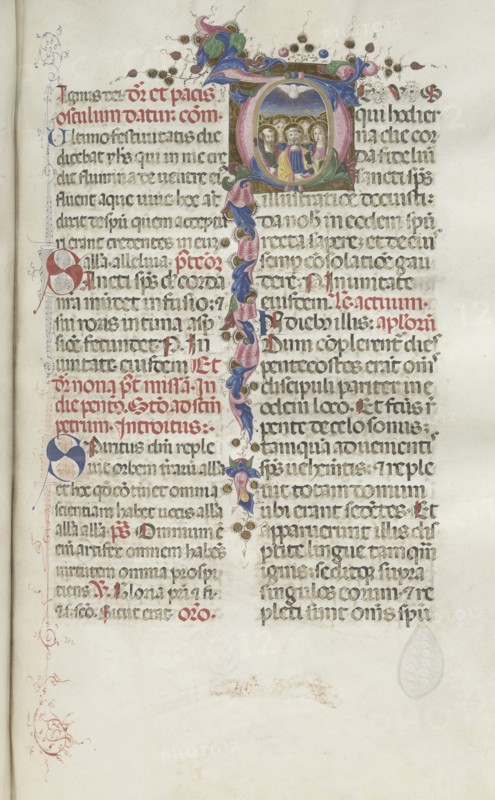 ignis dei. Or et pacis
osculum datur. com.
Ultimo festivitatis die
dicebat yhs qui in me cre
dit flumina de ventre ei
fluent aque vive hoc at
dixit de spu quem accepturi
ri erant credentes in eum
alla. alleluia. pt cor
Sancti sps dne corda
nra mundet infusio: et
sui roris intima asp
sioe fecundet. P. In
unitate eiusdem Et
dr nona pt missa. In
die pent. Sto ad scm
petrum. Introitus:
Spiritus dni reple
vit orbem terraru alla
et hoc qd continet omnia
scientiam habet vocis alla
alla alla. ps. Omnium e
eni artifex omnem habes
virtutem omnia prospi
ciens V. Gloria pri et fi.
et sco. Sicut erat. oro.
qui hodier
na die cor
da fidelium
sancti sps
illustratioe docuisti:
da nob in eodem spu
recta sapere: et de eius
semp cosolatioe gau
dere. P. In unitate
eiusdem. le. actuum.
In diebus illis: aplorum
Dum coplerent dies
pentecostes erat oms
discipuli pariter in e
odem loco. Et fcus e
pente de celo sonus:
tamqua advenienti
sps vehemtis: et reple
vit totam domum
ubi erant sedetes. Et
apparuerunt illis dis
ptite lingue tamqm
ignis: seditqz supra
singulos eorum: et re
pleti sunt oms spu